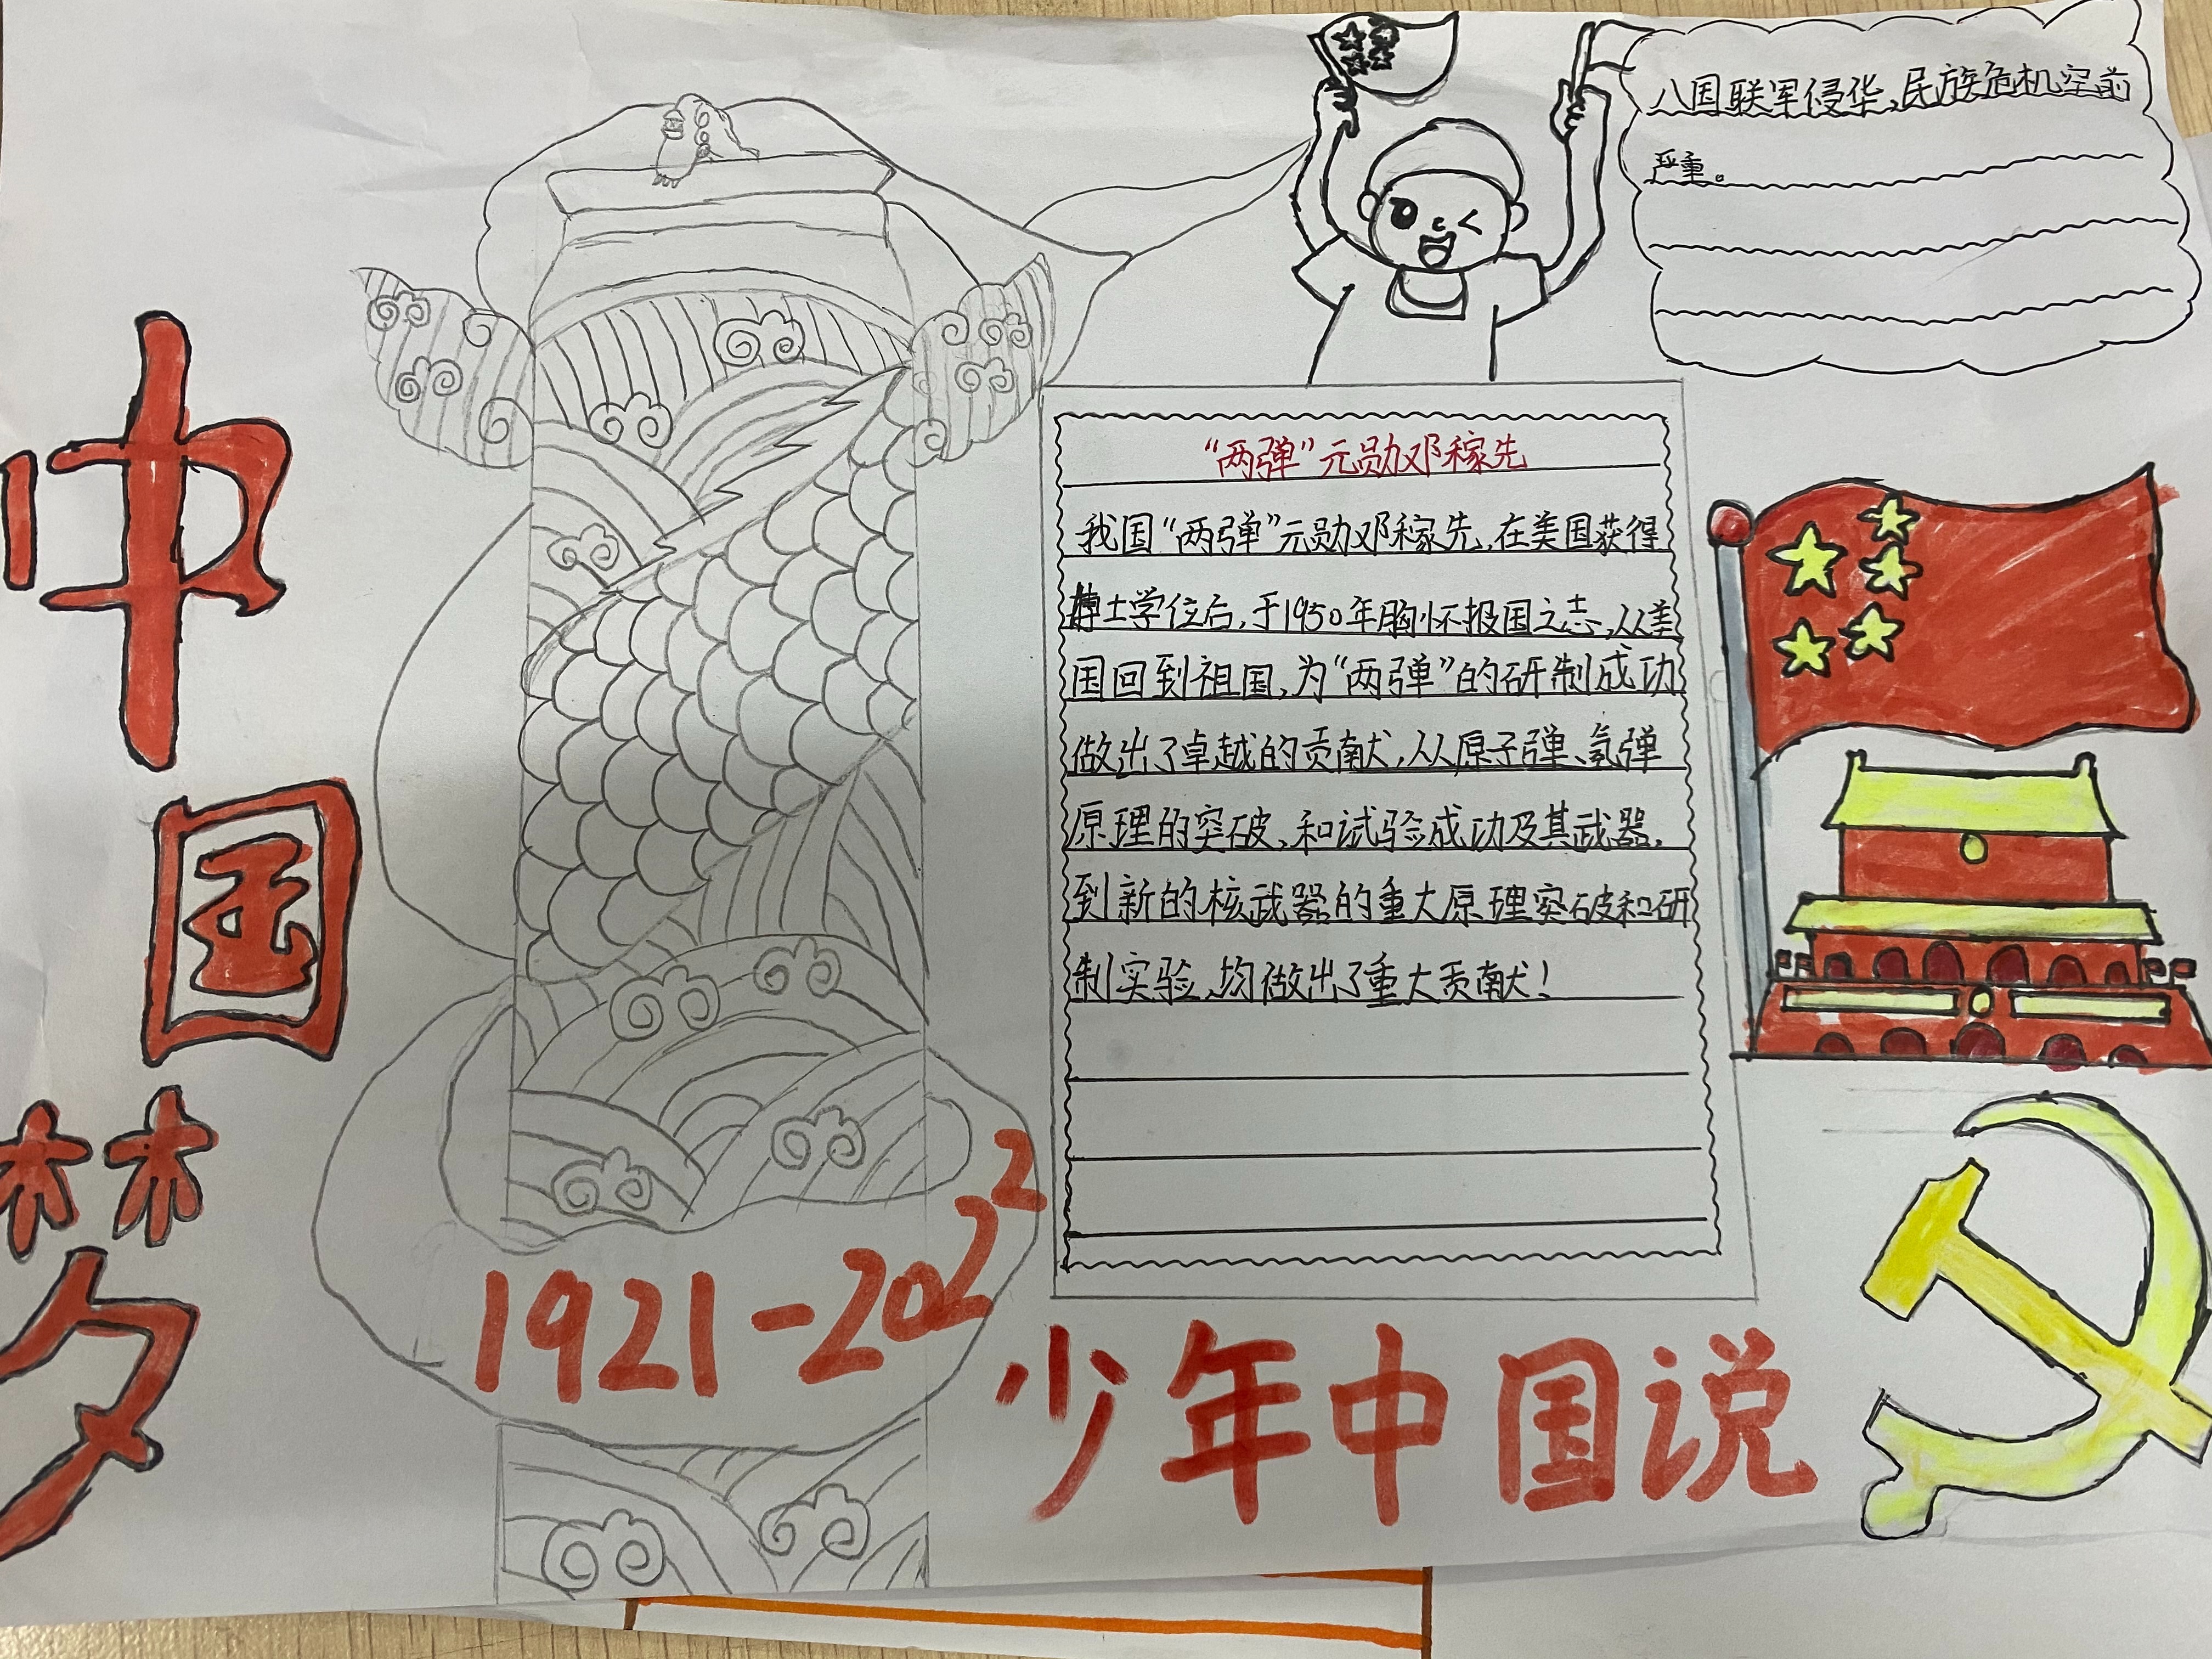 中国梦
八国联军侵华、民族危机空前
严重。
“两弹”元勋邓稼先
我国“两弹”元勋邓稼先,在美国获得
博士学位后,于1950年胸怀报国之志,从美
国回到祖国,为“两弹”的研制成功
做出了卓越的贡献,从原子弹、氢弹
原理的突破、和试验成功及其武器,
到新的核武器的重大原理突破和研
制实验、均做出了重大贡献!
1921-2022
少年中国说